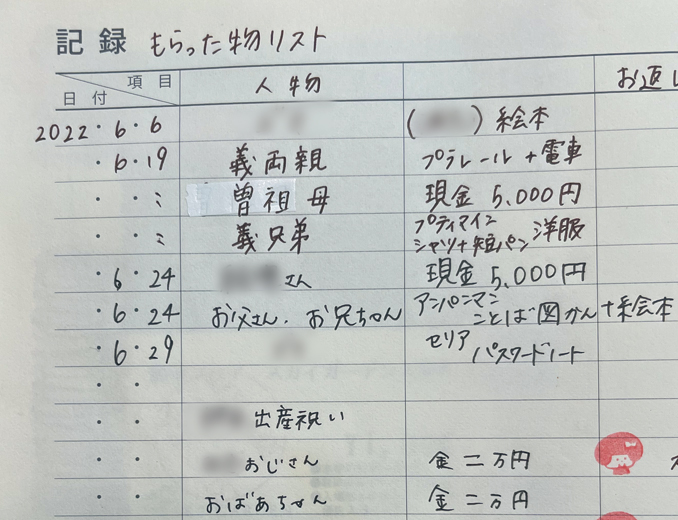 記録 もらった物リスト
項目
日付 人物 お返し
2022・6・6 ( ) 絵本
・6・19 義両親 プラレール+電車
・・〃 曽祖母 現金 5,000円
・・〃 義兄弟 プティマイン シャツ+短パン 洋服
・6・24 さん 現金 5,000円
・6・24 お父さん、お兄ちゃん アンパンマン ことば図かん+絵本
・6・29 セリア パスワードノート
・・
・・ 出産祝い
・・ おじさん 金二万円
・・ おばあちゃん 金二万円